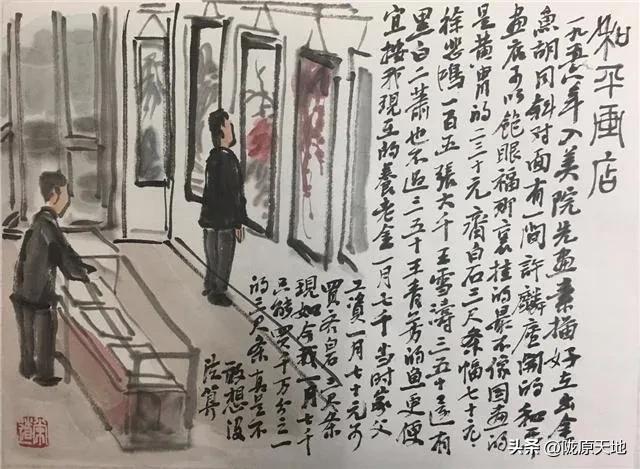 和平画店
一九五六年入美院先画素描好立出金
魚胡同斜对面有一間許麟庐開的和平
画店可以饱眼福那裏挂的最不像国画的
是黄胄的二三十元齊白石三尺条幅七十元
徐悲鴻一百五張大千王雪濤三五十還有
黑白二蕭也不過三五十王青芳的魚更便
宜按我現在的養老金一月七千当时家父
工資一月七十元可
買齐白石三尺条
現如今我一月七千
只能買千万分之一
的三尺条真是不
敢想没
法算
头条 @陇原天地